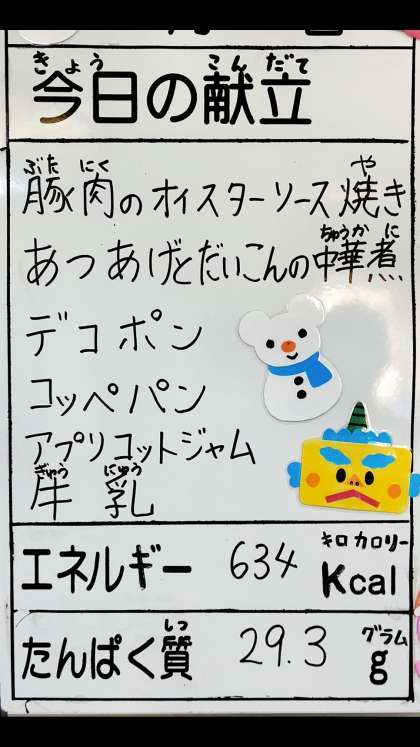 きょう こんだて
今日の献立
ぶた にく や
豚肉のオイスターソース焼き
ちゅうか に
あつあげとだいこんの中華煮
デコポン
コッペパン
アプリコットジャム
ぎゅう にゅう
牛乳
キロカロリー
エネルギー 634 Kcal
しつ グラム
たんぱく質 29.3 g